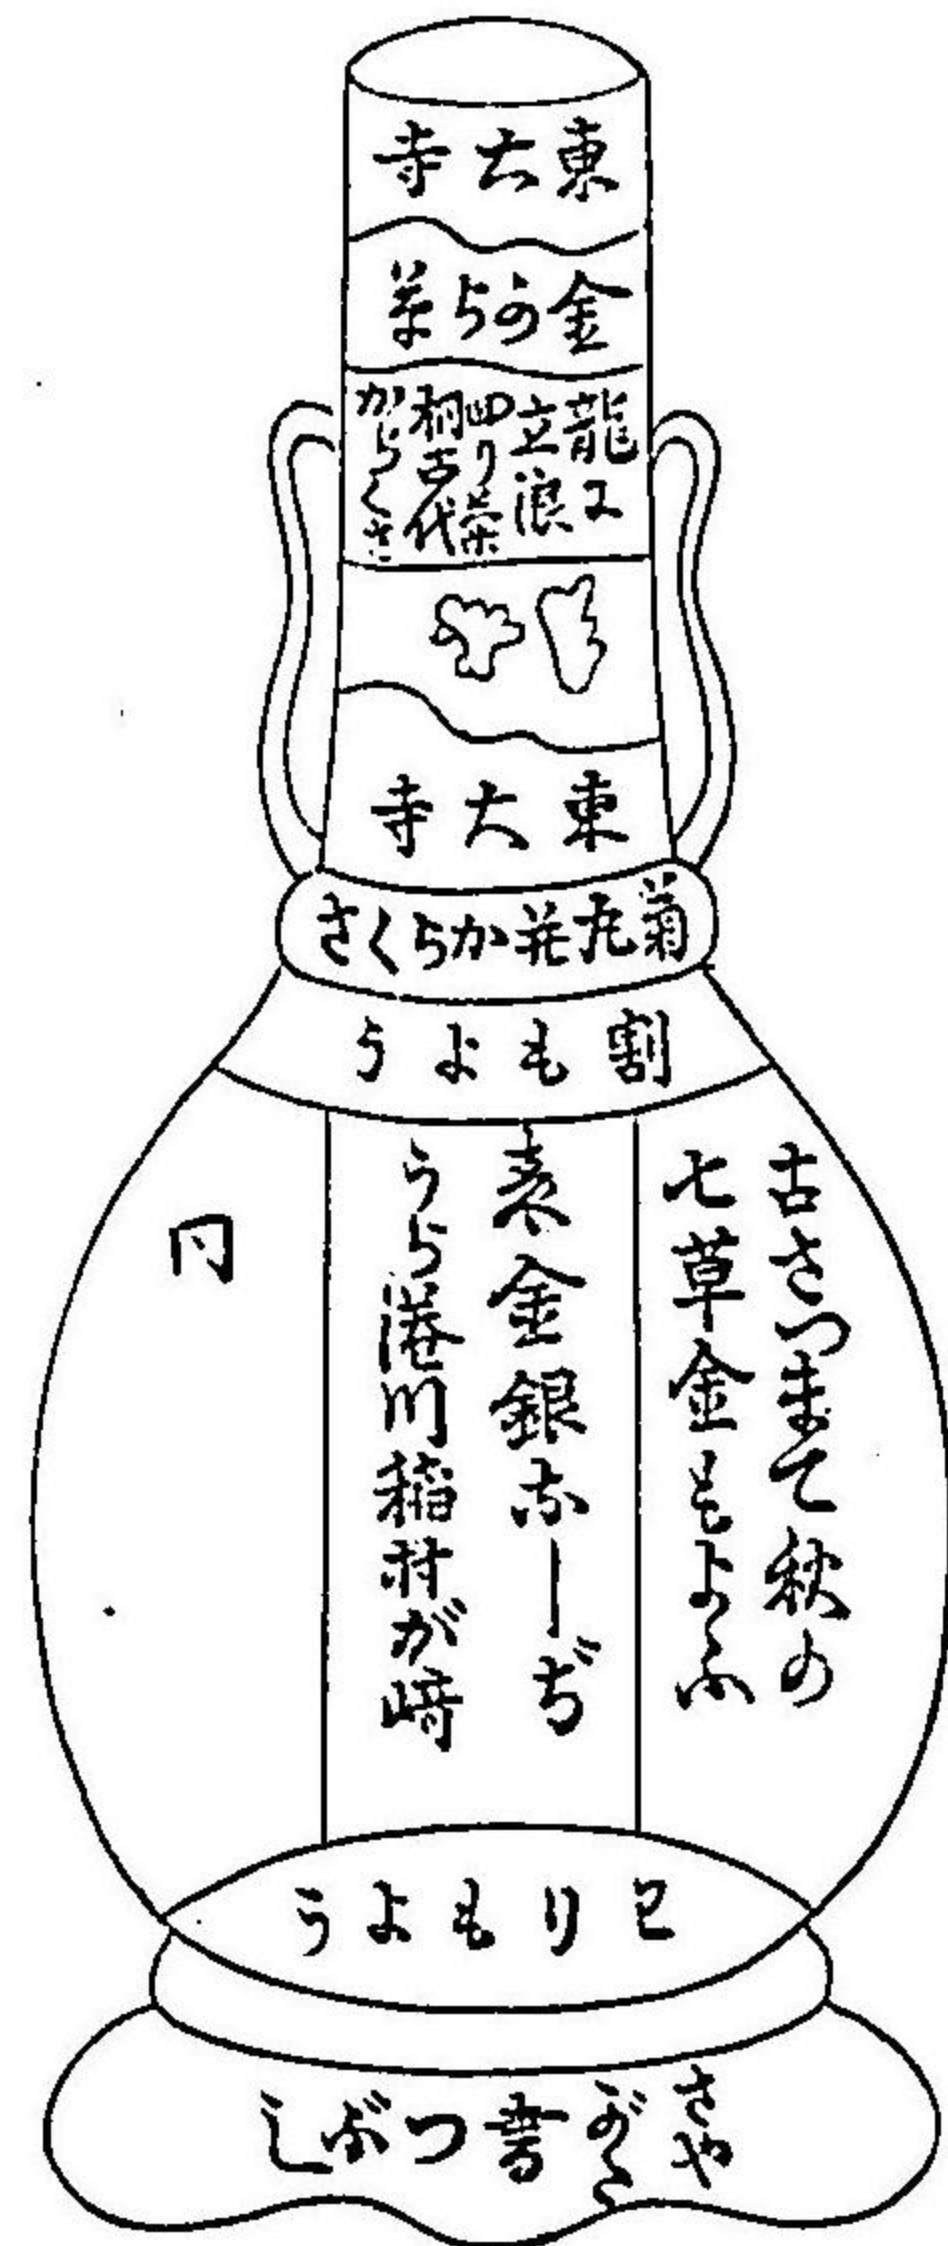 東大寺
金のらち草
龍に
立浪
桐古代
からくさ
東大寺
菊丸花からくさ
割もよう
古さつまて秋の
七草金もよふ
表金銀なしぢ
うら湊川稲村が崎
同
わりもよう
さや
がた
書つぶし